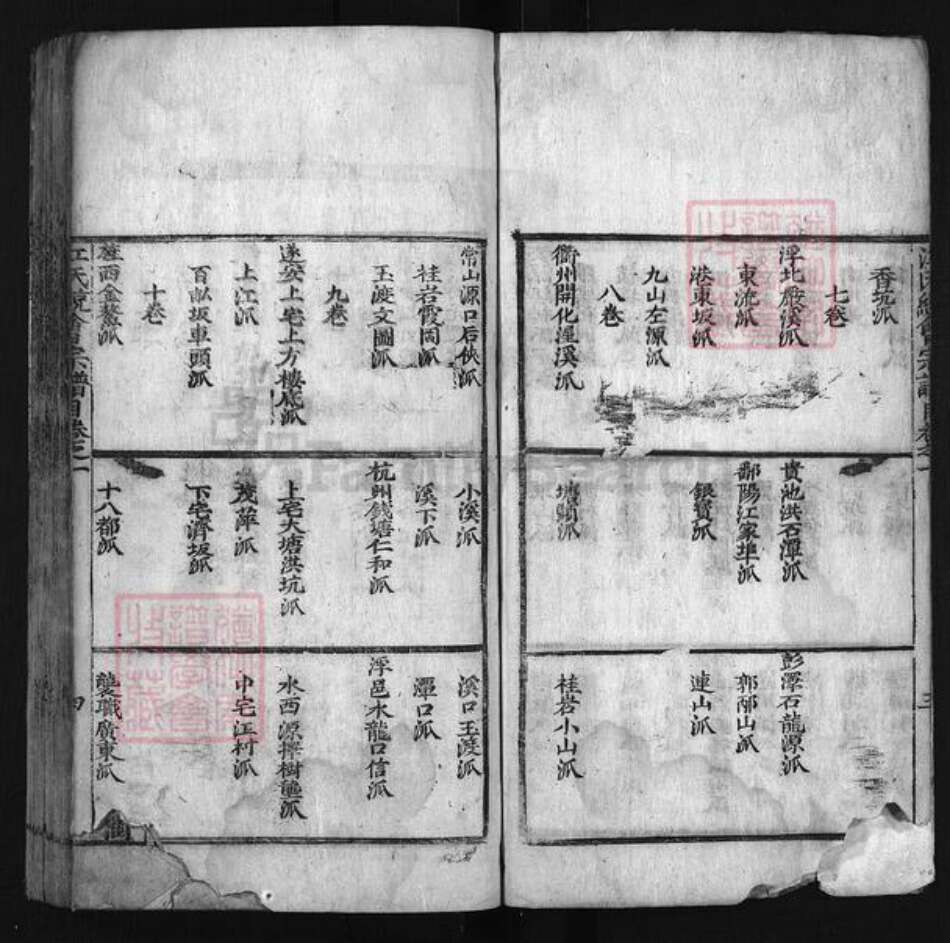 香坑派
七卷
浮北嚴溪派
貴池洪石潭派
彭潭石龍源派
東流派
鄱陽江家埠派
郭祁山派
港東坂派
銀寶派
連山派
九山左源派
八卷
衢州開化浬溪派
塘頭派
桂岩小山派
常山源口后俠派
小溪派
溪口玉淺派
桂岩霞岡派
溪下派
潭口派
玉淺文圖派
杭州錢塘仁和派
浮邑水龍口信派
九卷
遂安上宅上方樓底派
上宅大塘洪坑派
水西源擇樹壠派
上江派
茂萍派
中宅江村派
百畝坂車頭派
下宅濟坂派
十卷
旌西金鰲派
十八都派
襲職廣東派
江氏統會宗譜目卷之一
四